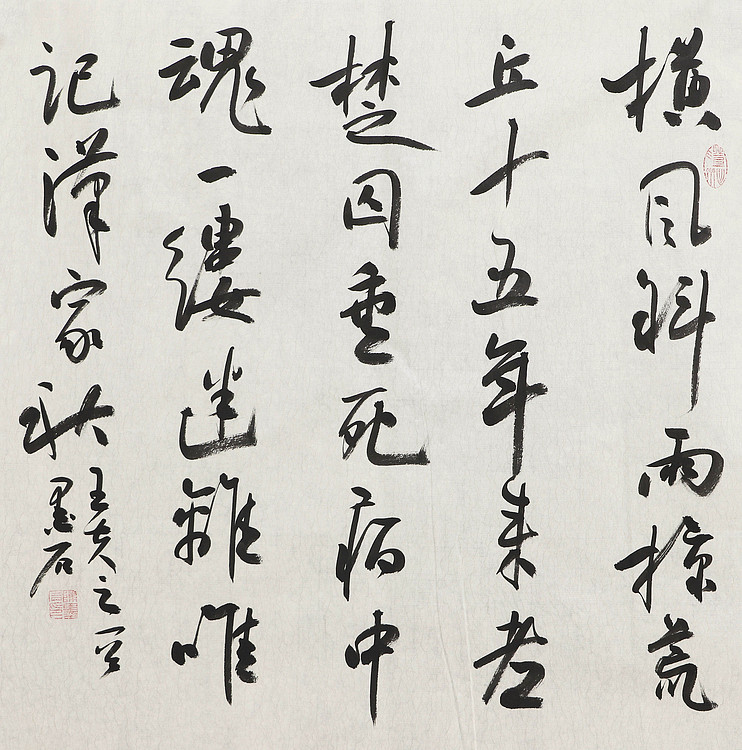 横风斜雨掠荒
丘十五年来老
楚囚垂死病中
魂一縷迷離唯
记漢家秋
王夫之句
墨石